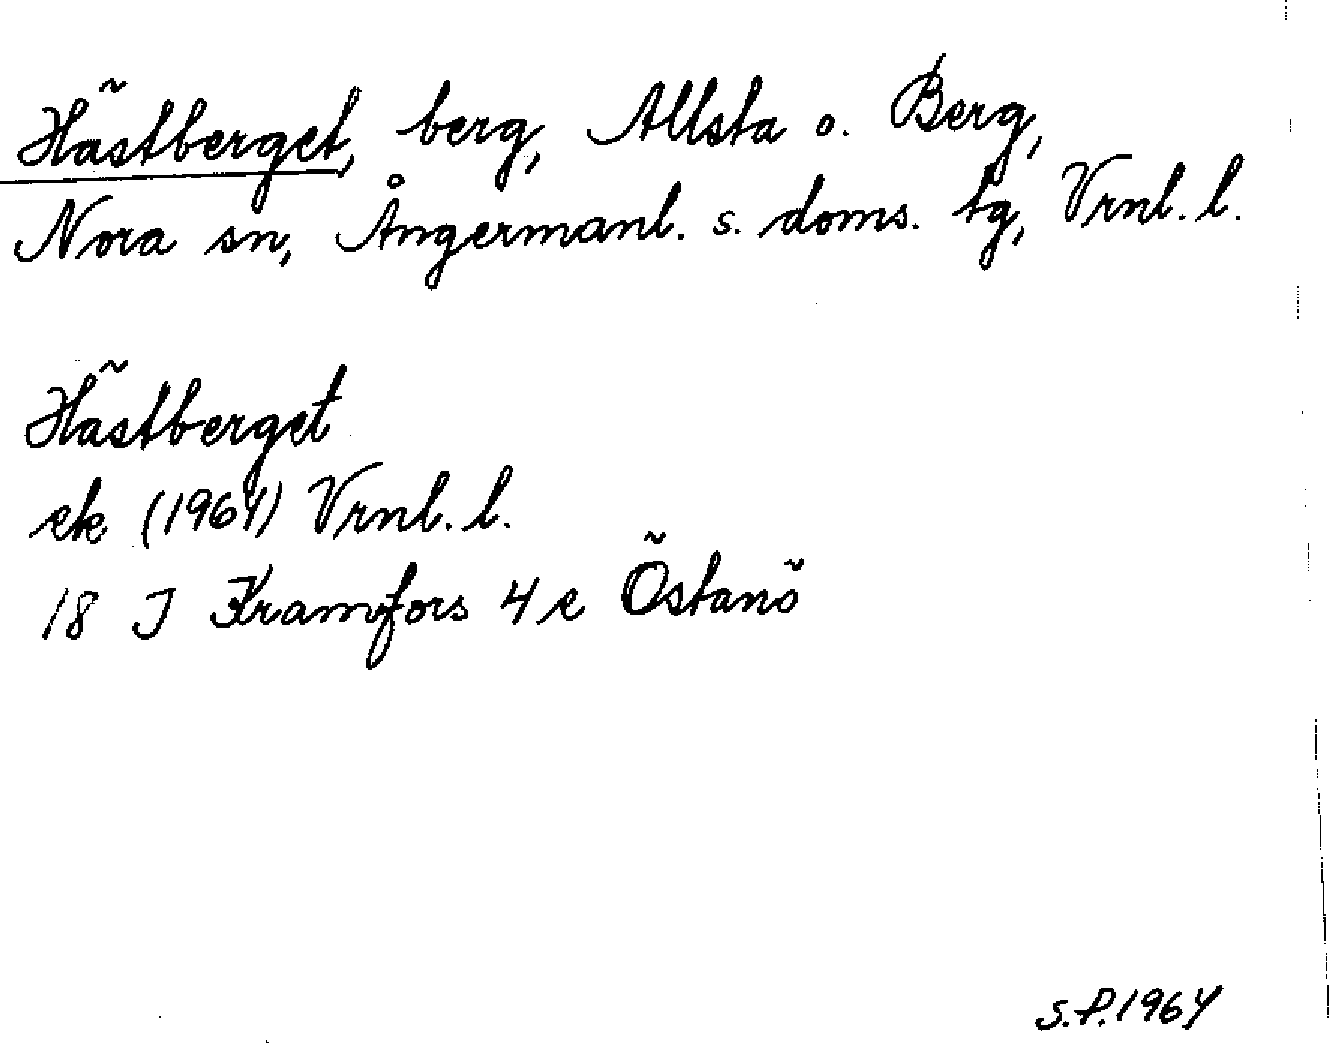 Hästberget, berg, Allsta o. Berg,
Nora sn, Ångermanl. s. doms. tg, Vrnl. l.
Hästberget
ek (1964) Vrnl. l.
18 J Kramfors 4 e Östanö
S.P. 1964